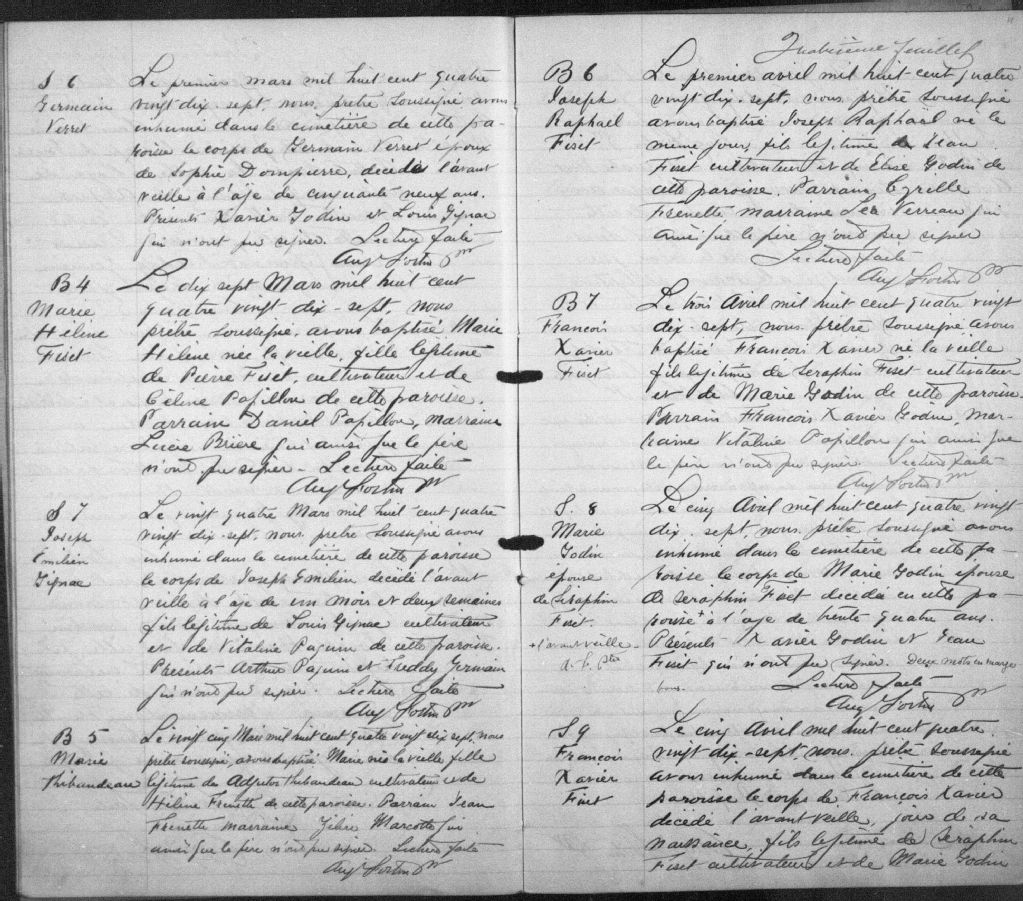 S 6
Germain
Verret
Le premier mars mil huit cent quatre
vingt dix-sept, nous, prêtre soussigné avons
inhumé dans le cimetière de cette pa-
roisse le corps de Germain Verret époux
de Sophie Dompierre, décédé l'avant
veille à l'âge de cinquante neuf ans.
Présents Xavier Godin et Louis Gignac
qui n'ont pu signer. Lecture faite
Aug Fortin Ptr
B 4
Marie
Hélène
Fiset
Le dix sept Mars mil huit cent
quatre vingt dix-sept, nous
prêtre soussigné, avons baptisé Marie
Hélène née la veille, fille légitime
de Pierre Fiset, cultivateur et de
Céline Papillon de cette paroisse.
Parrain Daniel Papillon, marraine
Lucie Brière qui ainsi que le père
n'ont pu signer - Lecture faite
Aug Fortin Ptr
S 7
Joseph
Emilien
Gignac
Le vingt quatre Mars mil huit cent quatre
vingt dix-sept, nous prêtre soussigné avons
inhumé dans le cimetière de cette paroisse
le corps de Joseph Emilien décédé l'avant
veille à l'âge de un mois et deux semaines
fils légitime de Louis Gignac cultivateur
et de Vitaline Paquin de cette paroisse.
Présents Arthur Paquin et Freddy Germain
qui n'ont pu signer. Lecture faite
Aug Fortin Ptr
B 5
Marie
Thibaudeau
Le vingt cinq Mars mil huit cent quatre vingt dix sept, nous
prêtre soussigné, avons baptisé Marie née la veille, fille
légitime de Adjutor Thibaudeau cultivateur et de
Hélène Frenette de cette paroisse. Parrain Jean
Frenette marraine Marcotte qui
ainsi que le père n'ont pu signer. Lecture faite
Aug Fortin Ptr
Quatrième feuillet
B 6
Joseph
Raphael
Fiset
Le premier avril mil huit cent quatre
vingt dix-sept, nous prêtre soussigné
avons baptisé Joseph Raphael né le
même jour, fils légitime de Jean
Fiset cultivateur et de Elise Godin de
cette paroisse. Parrain Cyrille
Frenette marraine Léa Verreau qui
ainsi que le père n'ont pu signer
Lecture faite
Aug Fortin Ptr
B 7
François
Xavier
Fiset
Le trois Avril mil huit cent quatre vingt
dix-sept, nous prêtre soussigné avons
baptisé François Xavier né la veille
fils légitime de Séraphin Fiset cultivateur
et de Marie Godin de cette paroisse
Parrain François Xavier Godin, mar-
raine Vitaline Papillon qui ainsi que
le père n'ont pu signer. Lecture faite
Aug Fortin Ptr
S. 8
Marie
Godin
épouse
de Séraphin
Fiset.
+ l'avant veille
a. f. ptre
Le cinq Avril mil huit cent quatre vingt
dix-sept, nous, prêtre soussigné avons
inhumé dans le cimetière de cette pa-
roisse le corps de Marie Godin épouse
de Séraphin Fiset décédée en cette pa-
roisse + à l'âge de trente quatre ans.
Présents Xavier Godin et Jean
Fiset qui n'ont pu signer. Deux mots en marge
bons. Lecture faite
Aug Fortin Ptr
S 9
François
Xavier
Fiset
Le cinq Avril mil huit cent quatre
vingt dix-sept, nous, prêtre soussigné
avons inhumé dans le cimetière de cette
paroisse le corps de François Xavier
décédé l'avant veille, jour de sa
naissance, fils légitime de Séraphin
Fiset cultivateur et de Marie Godin